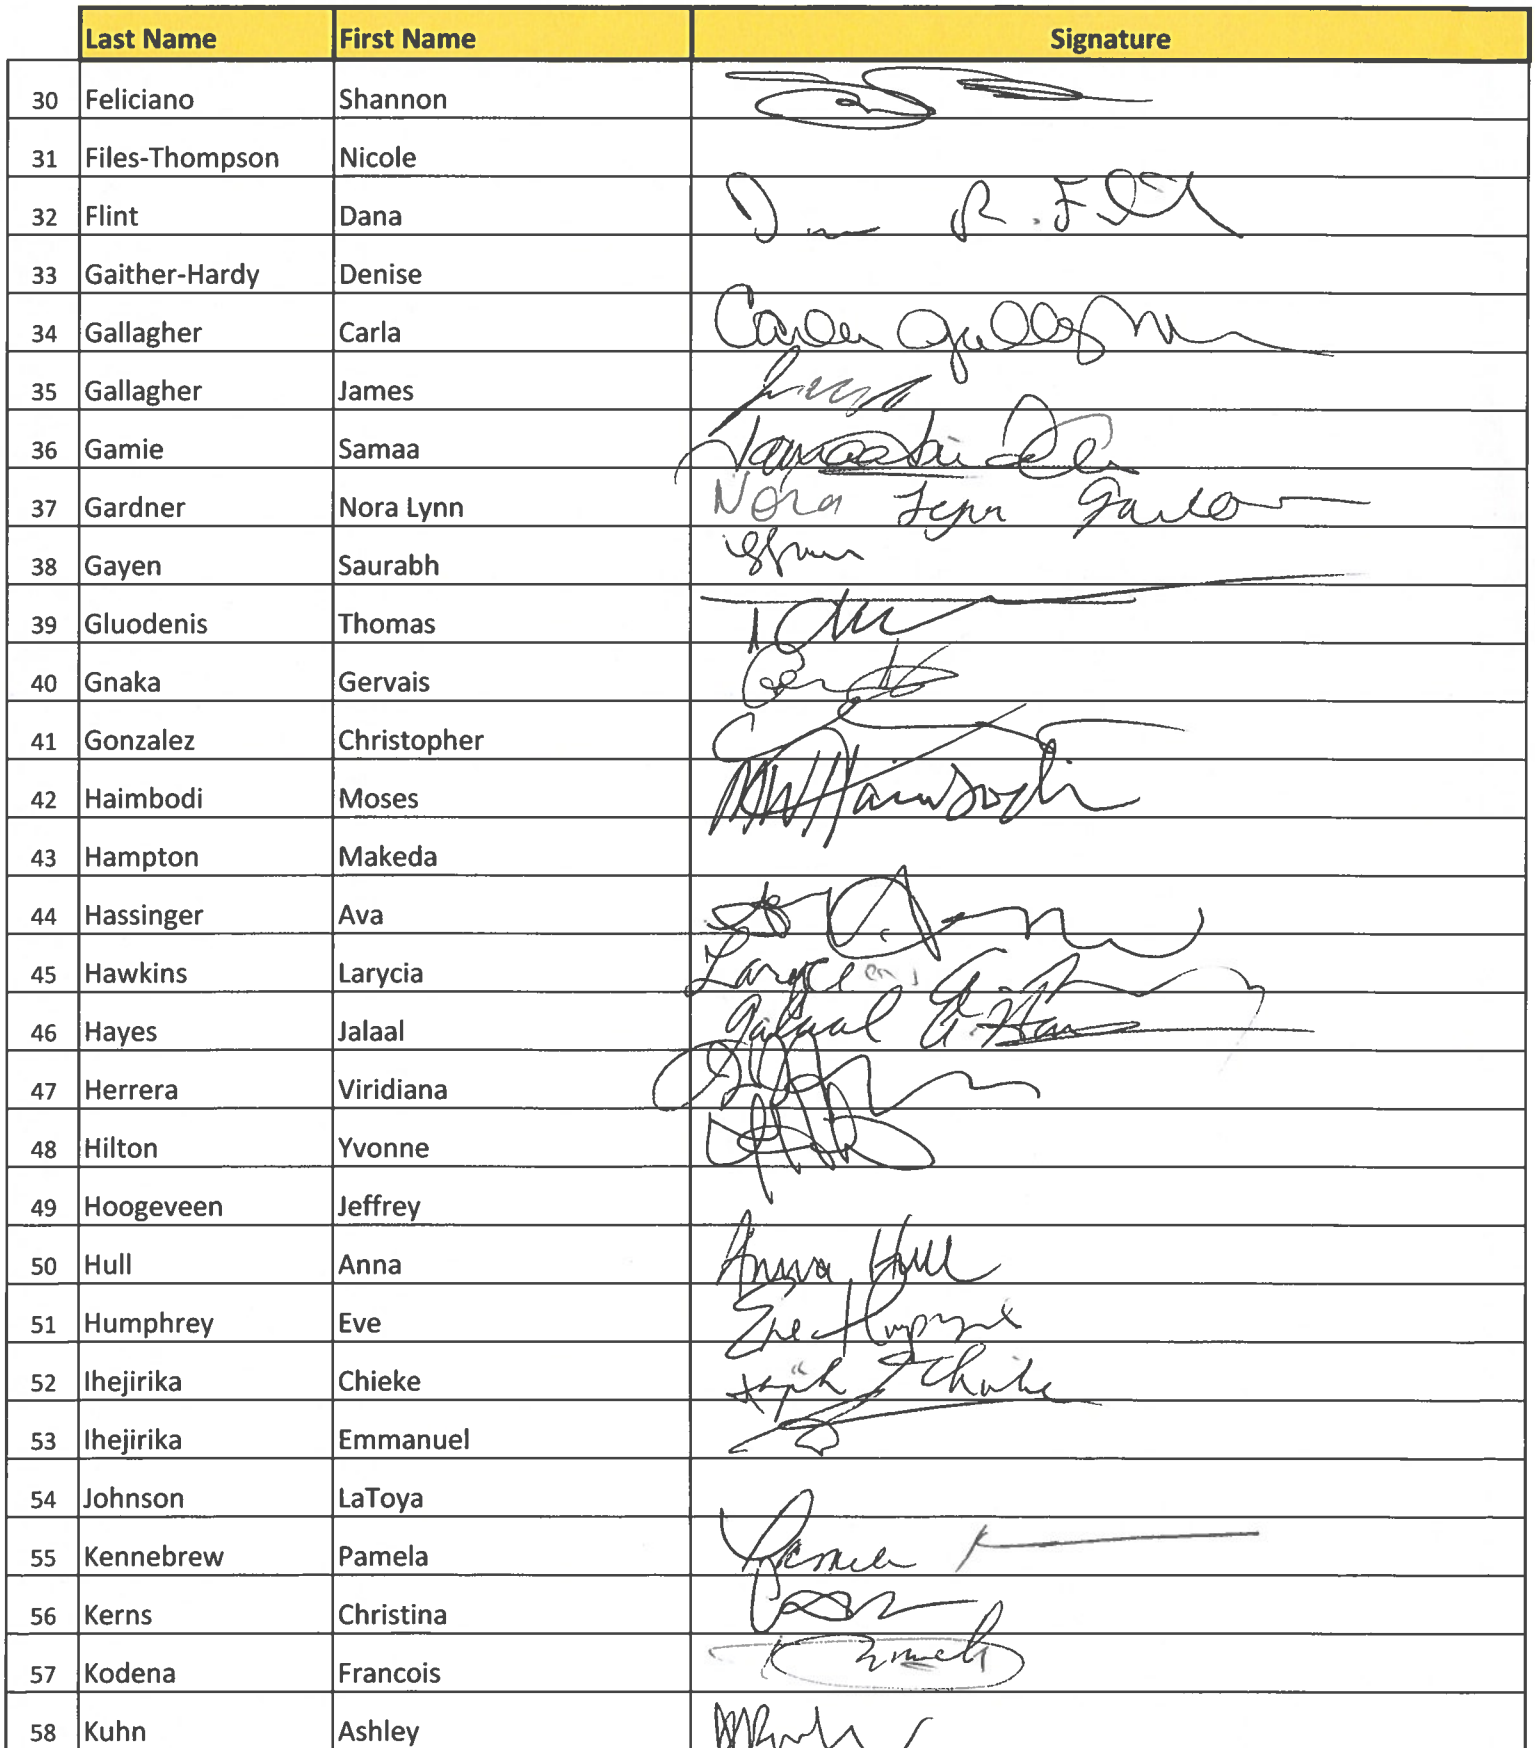 Last Name First Name Signature
30 Feliciano Shannon
31 Files-Thompson Nicole
32 Flint Dana D R. Fl
33 Gaither-Hardy Denise
34 Gallagher Carla Carla Gallagher
35 Gallagher James
36 Gamie Samaa
37 Gardner Nora Lynn Nora Lynn Gardner
38 Gayen Saurabh
39 Gluodenis Thomas
40 Gnaka Gervais
41 Gonzalez Christopher
42 Haimbodi Moses Haimbodi
43 Hampton Makeda
44 Hassinger Ava
45 Hawkins Larycia
46 Hayes Jalaal Jalaal
47 Herrera Viridiana
48 Hilton Yvonne
49 Hoogeveen Jeffrey
50 Hull Anna Anna Hull
51 Humphrey Eve Eve Humphrey
52 Ihejirika Chieke
53 Ihejirika Emmanuel
54 Johnson LaToya
55 Kennebrew Pamela Pamela K
56 Kerns Christina
57 Kodena Francois
58 Kuhn Ashley